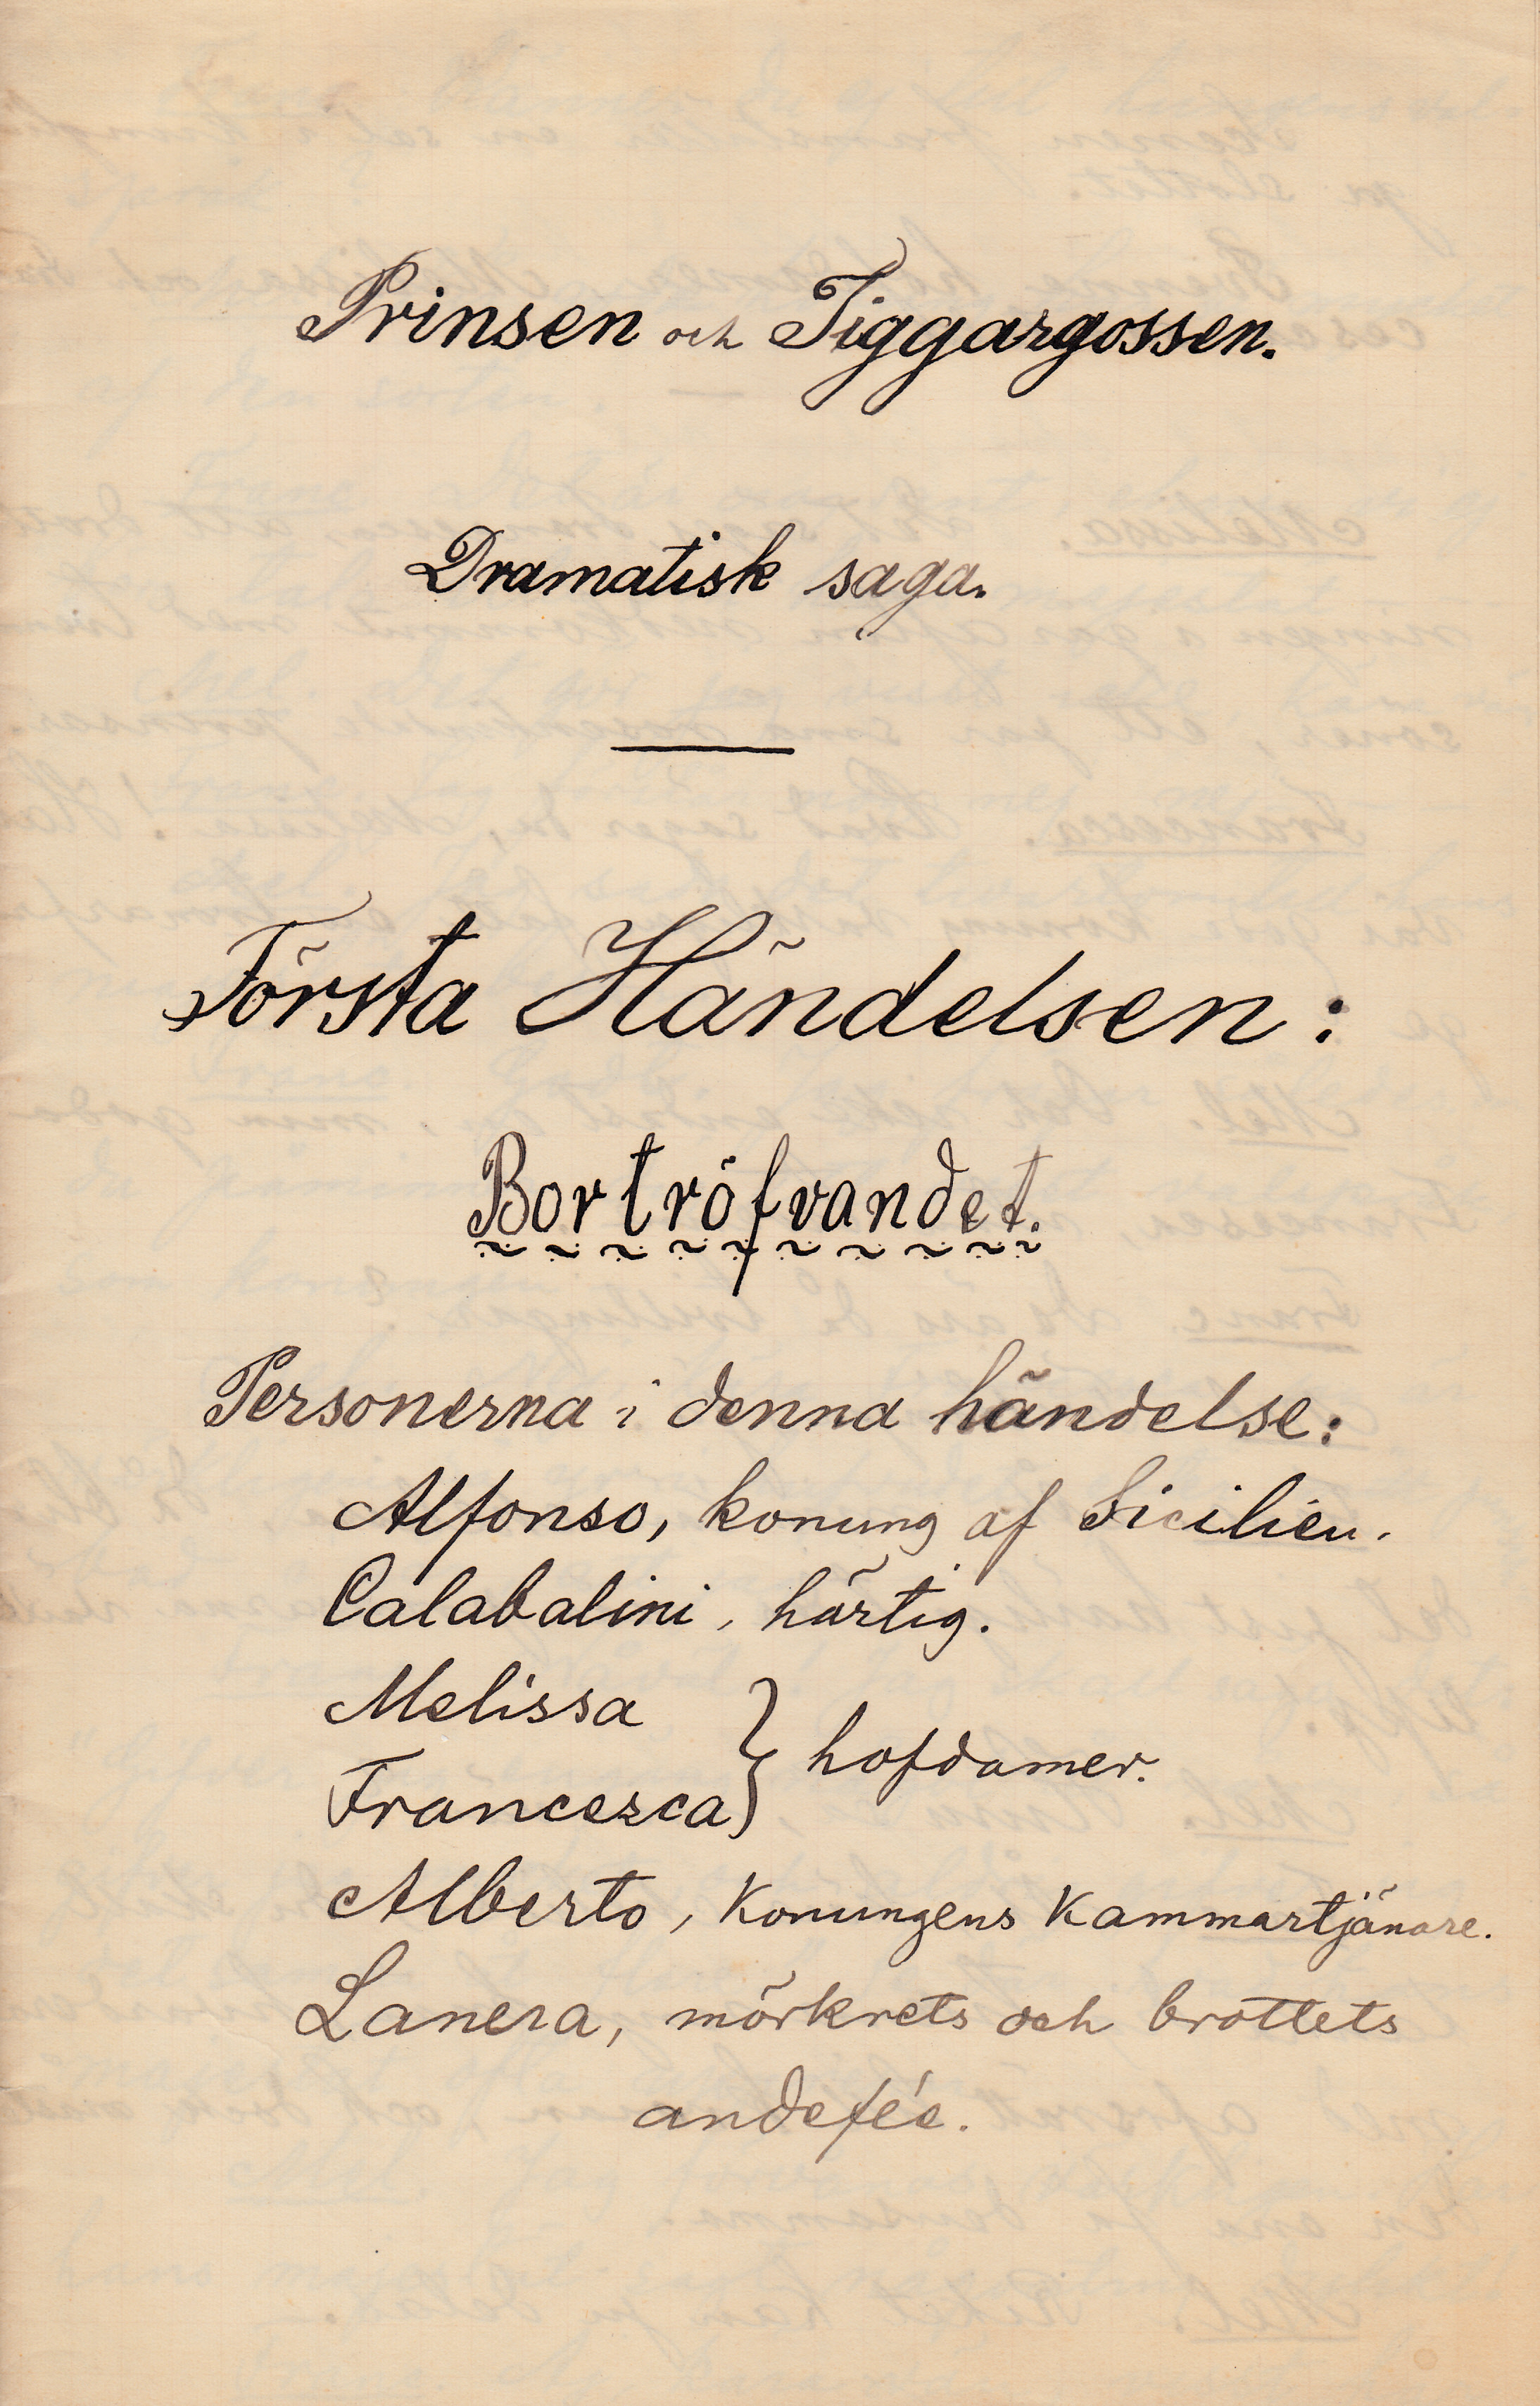 Prinsen och Tiggargossen.
Dramatisk saga.
Första Händelsen:
Bortröfvandet.
Personerna i denna händelse:
Alfonso, konung af Sicilien.
Calabalini, härtig.
Melissa
Francesca } hofdamer.
Alberto, Konungens Kammartjänare.
Lanera, mörkrets och brottets
andefée.